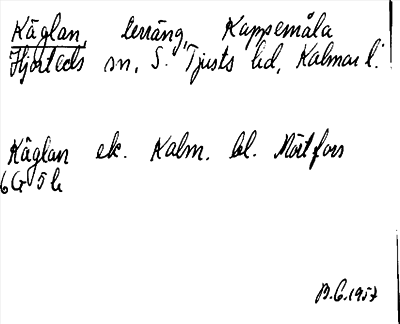 Käglan, terräng, Kappemåla
Hjorteds sn, S. Tjusts hd, Kalmar l.
Käglan ek. Kalm. bl. Mörtfors
6G5h
B.G.1957